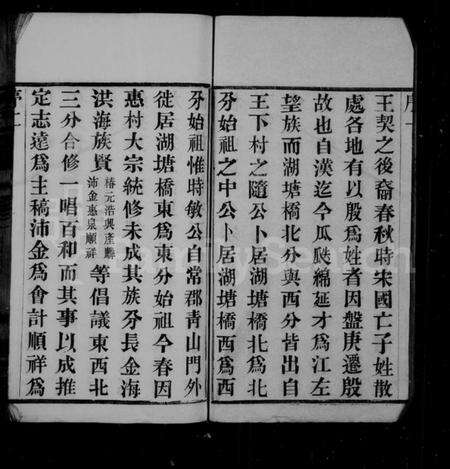 序一
王契之後裔春秋時宋國亡子姓散
處各地有以殷爲姓者因盤庚遷殷
故也自漢迄今瓜瓞綿延才爲江左
望族而湖塘橋北分與西分皆出自
王下村之隨公卜居湖塘橋北爲北
分始祖之中公卜居湖塘橋西爲西
分始祖惟時敏公自常郡青山門外
徙居湖塘橋東爲東分始祖今春因
惠村大宗統修未成其族分長金海
洪海族賢椿元浩興產麟沛金惠泉順祥等倡議東西北
三分合修一唱百和而其事以成推
定志遠爲主稿沛金爲會計順祥爲
序二